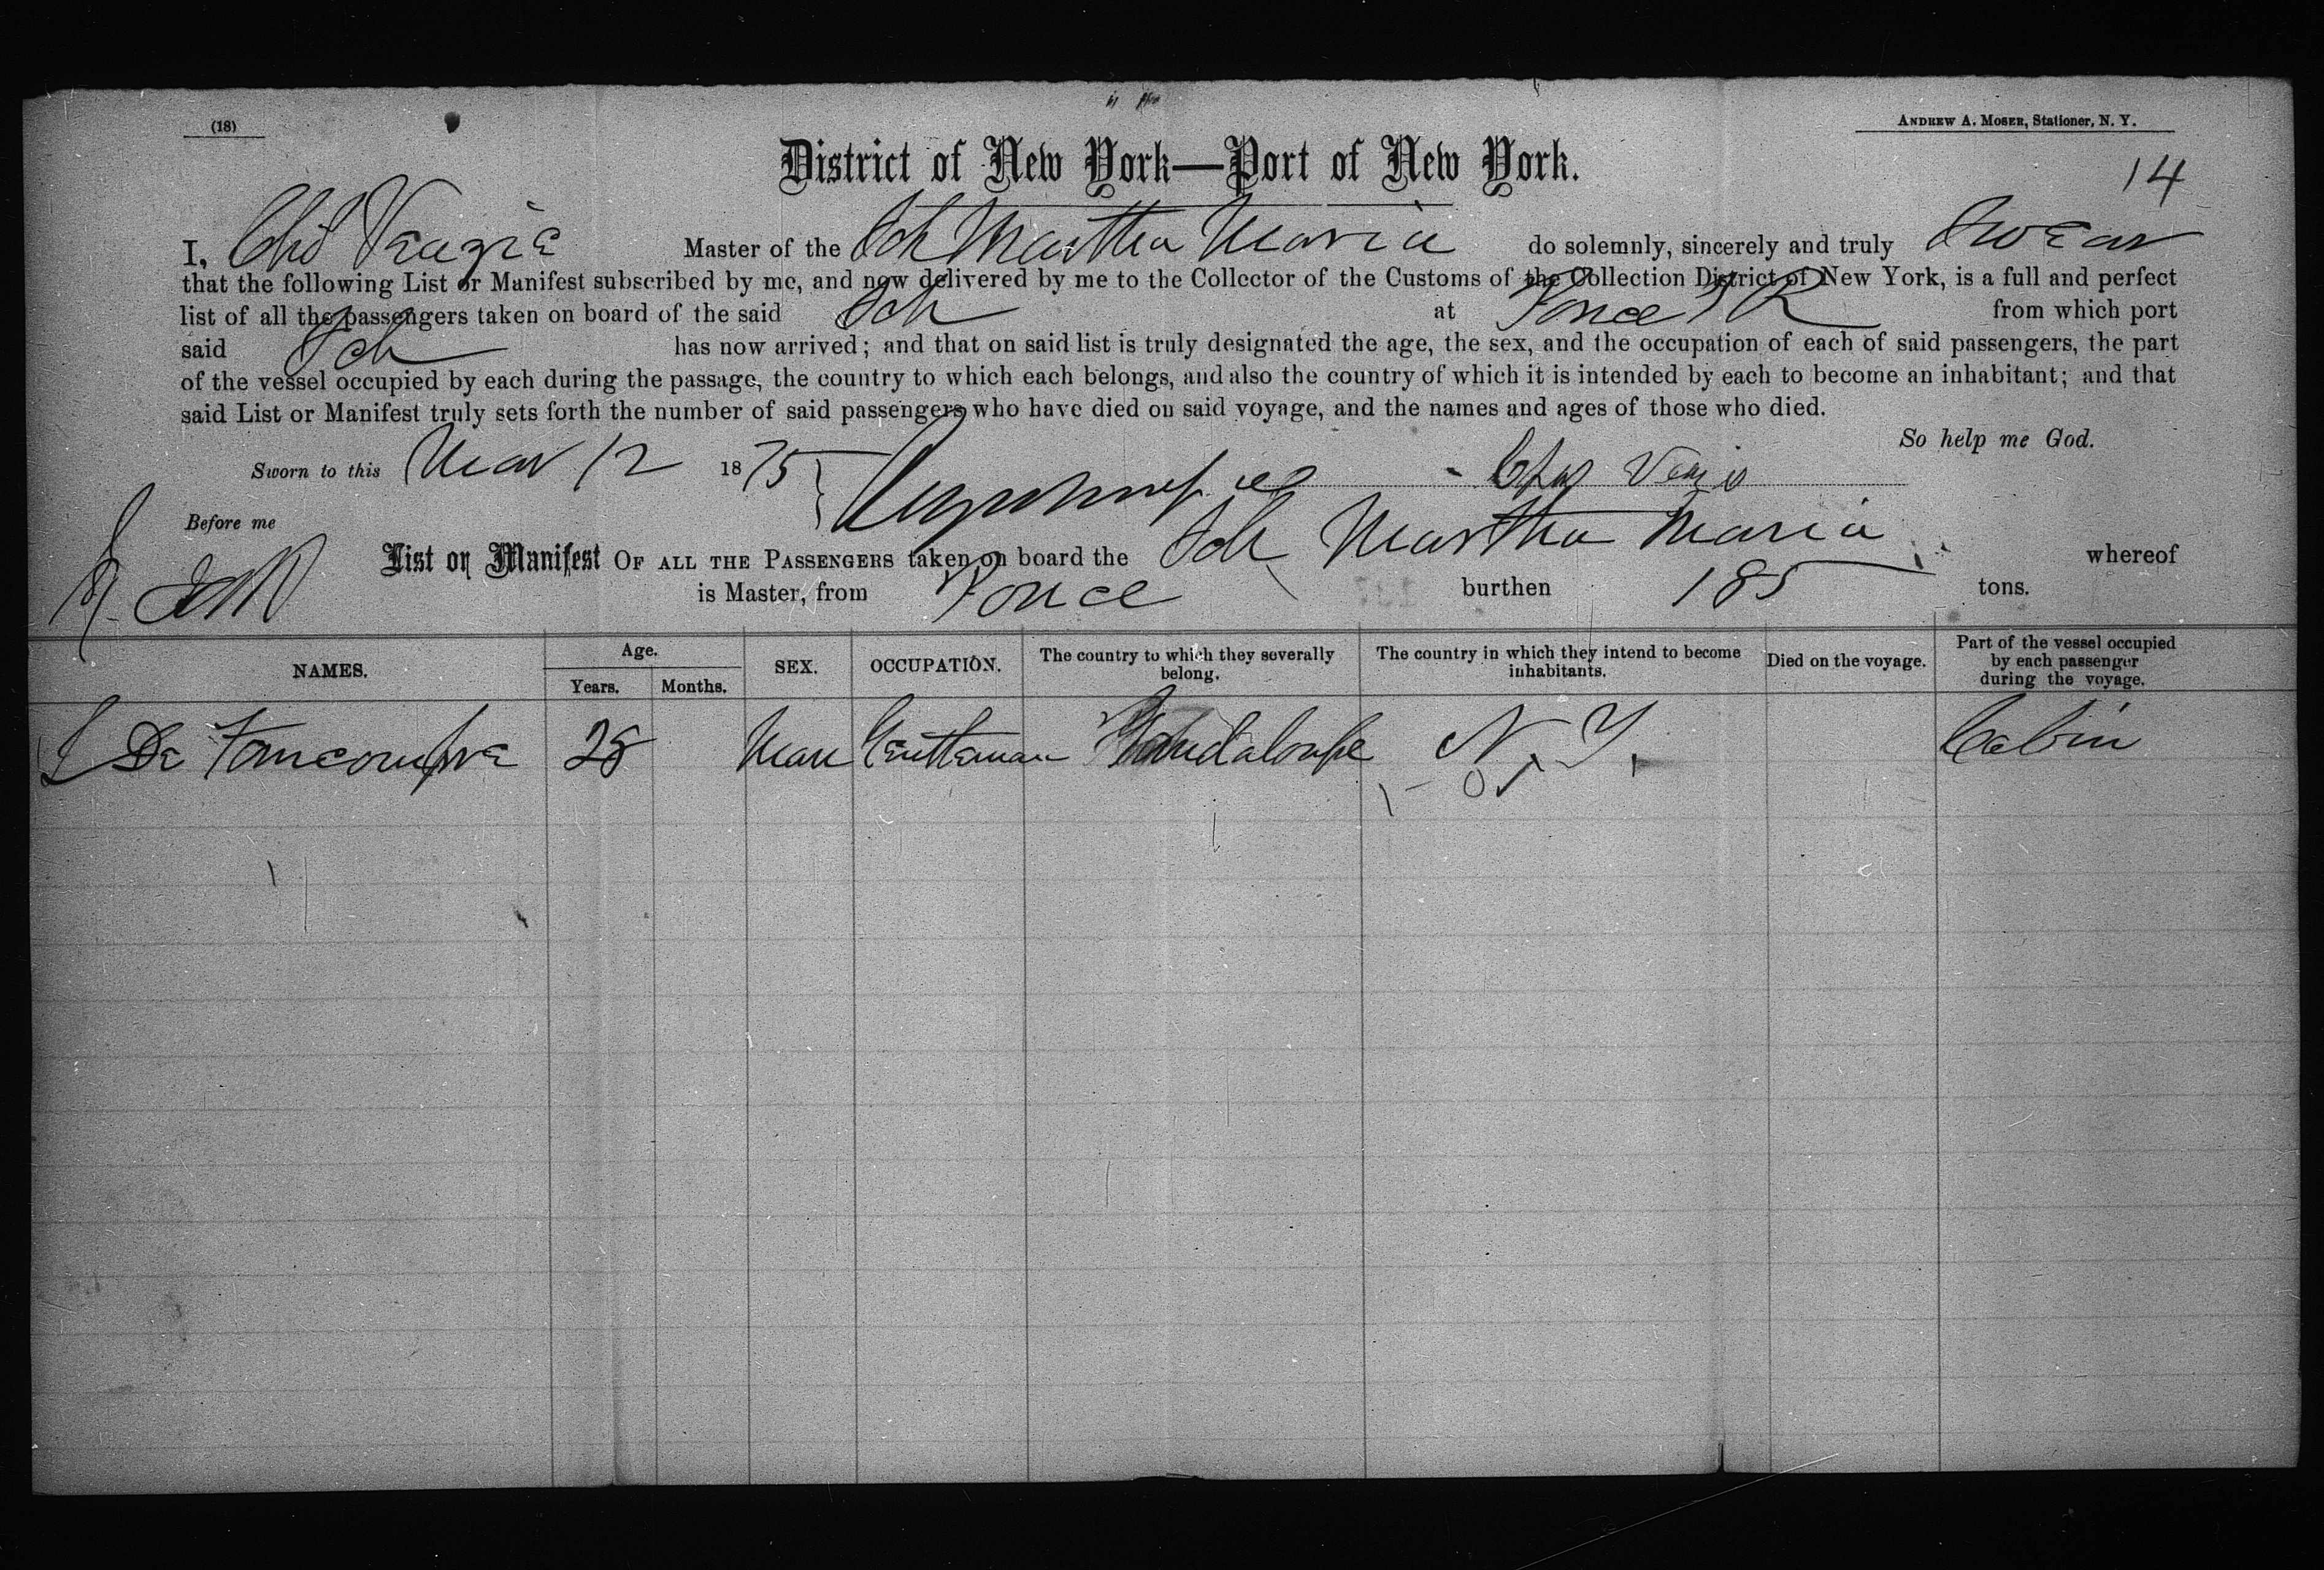 (18)
ANDREW A. MOSER, Stationer, N. Y.
14
District of New York—Port of New York.
I, Chs Veazie Master of the Sch Martha Maria do solemnly, sincerely and truly Swear
that the following List or Manifest subscribed by me, and now delivered by me to the Collector of the Customs of the Collection District of New York, is a full and perfect
list of all the passengers taken on board of the said Sch at Ponce P R from which port
said Sch has now arrived; and that on said list is truly designated the age, the sex, and the occupation of each of said passengers, the part
of the vessel occupied by each during the passage, the country to which each belongs, and also the country of which it is intended by each to become an inhabitant; and that
said List or Manifest truly sets forth the number of said passengers who have died on said voyage, and the names and ages of those who died.
So help me God.
Sworn to this Mar 12 1875
Before me
List or Manifest OF ALL THE PASSENGERS taken on board the Sch Martha Maria whereof
is Master, from Ponce burthen 185 tons.
NAMES. Age. Years. Months. SEX. OCCUPATION. The country to which they severally belong. The country in which they intend to become inhabitants. Died on the voyage. Part of the vessel occupied by each passenger during the voyage.
L De 28 Man Gentleman Guadaloupe N. Y. Cabin